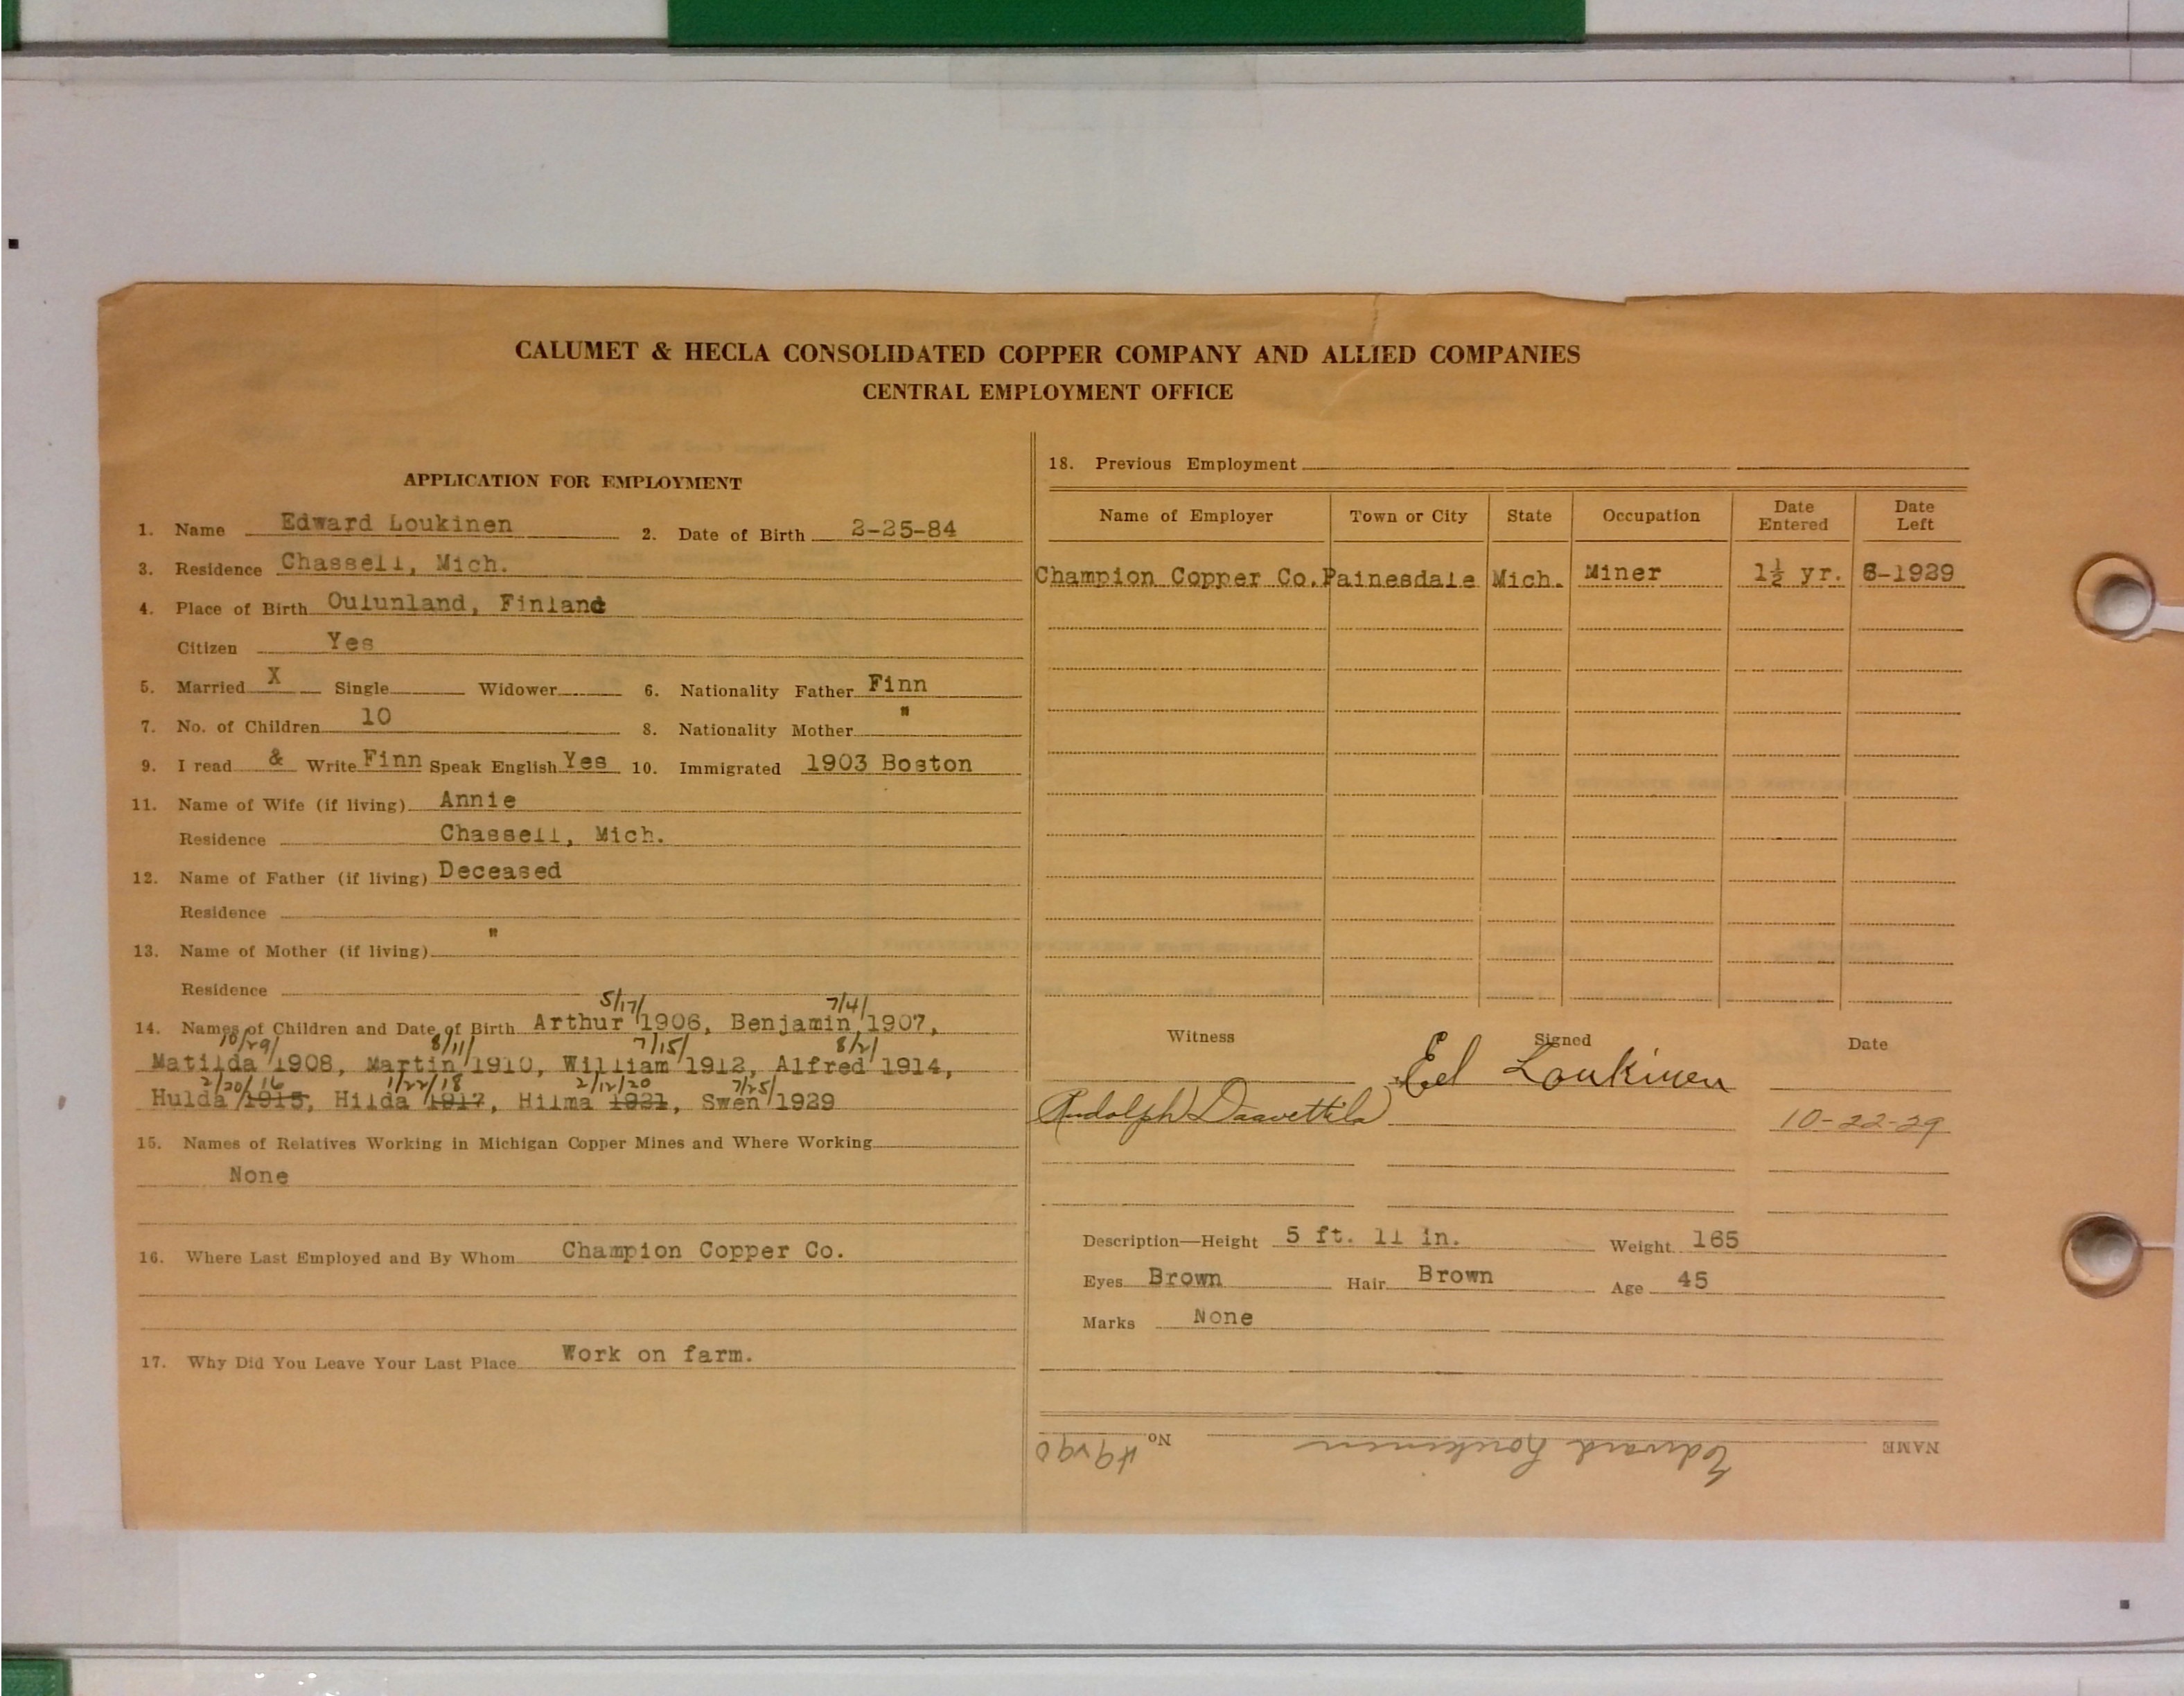 CALUMET & HECLA CONSOLIDATED COPPER COMPANY AND ALLIED COMPANIES
CENTRAL EMPLOYMENT OFFICE
APPLICATION FOR EMPLOYMENT
1. Name Edward Loukinen 2. Date of Birth 2-25-84
3. Residence Chassell, Mich.
4. Place of Birth Oulunland, Finland
Citizen Yes
5. Married X Single Widower 6. Nationality Father Finn
7. No. of Children 10 8. Nationality Mother "
9. I read & Write Finn Speak English Yes 10. Immigrated 1903 Boston
11. Name of Wife (if living) Annie
Residence Chassell, Mich.
12. Name of Father (if living) Deceased
Residence
13. Name of Mother (if living) "
Residence
5/17/ 7/4/
14. Names of Children and Date of Birth Arthur 1906, Benjamin, 1907,
10/29/ 8/11/ 7/15/ 8/2/
Matilda 1908, Martin 1910, William 1912, Alfred 1914,
2/20/16 1/22/18 2/12/20 7/25/
Hulda 1915, Hilda 1917, Hilma 1921, Swen 1929
15. Names of Relatives Working in Michigan Copper Mines and Where Working
None
16. Where Last Employed and By Whom Champion Copper Co.
17. Why Did You Leave Your Last Place Work on farm.
18. Previous Employment
Name of Employer Town or City State Occupation Date Entered Date Left
Champion Copper Co. Painesdale Mich. Miner 1½ yr. 6-1929
Witness Signed Date
Ed Loukinen
Rudolph Daavettila 10-22-29
Description—Height 5 ft. 11 in. Weight 165
Eyes Brown Hair Brown Age 45
Marks None
NAME Edward Loukinen No. 49290